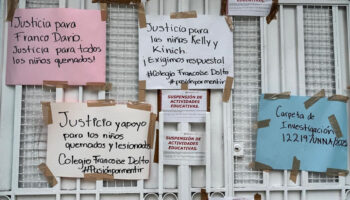 Justicia para
Franco Dano.
Justicia para todos
los niños quemados!
Justicia para
las niñas Kelly y
Kinich.
¡Exigimos respuesta!
#Colegio Francoise Dolto
#pasionpormentir
Justicia y apoyo
para los niños
quemados y lesionados
Colegio Francoise Dolto
#Pasiónpormentir
SUSPENSIÓN DE
ACTIVIDADES
EDUCATIVAS.
SUSPENSIÓN DE
ACTIVIDADES
EDUCATIVAS.
Carpeta de
Investigación